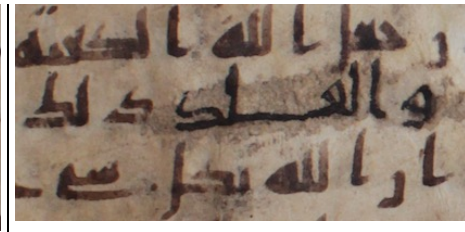 جعل الله الكعبة
والقلـد ذلك
ان الله بكل شى